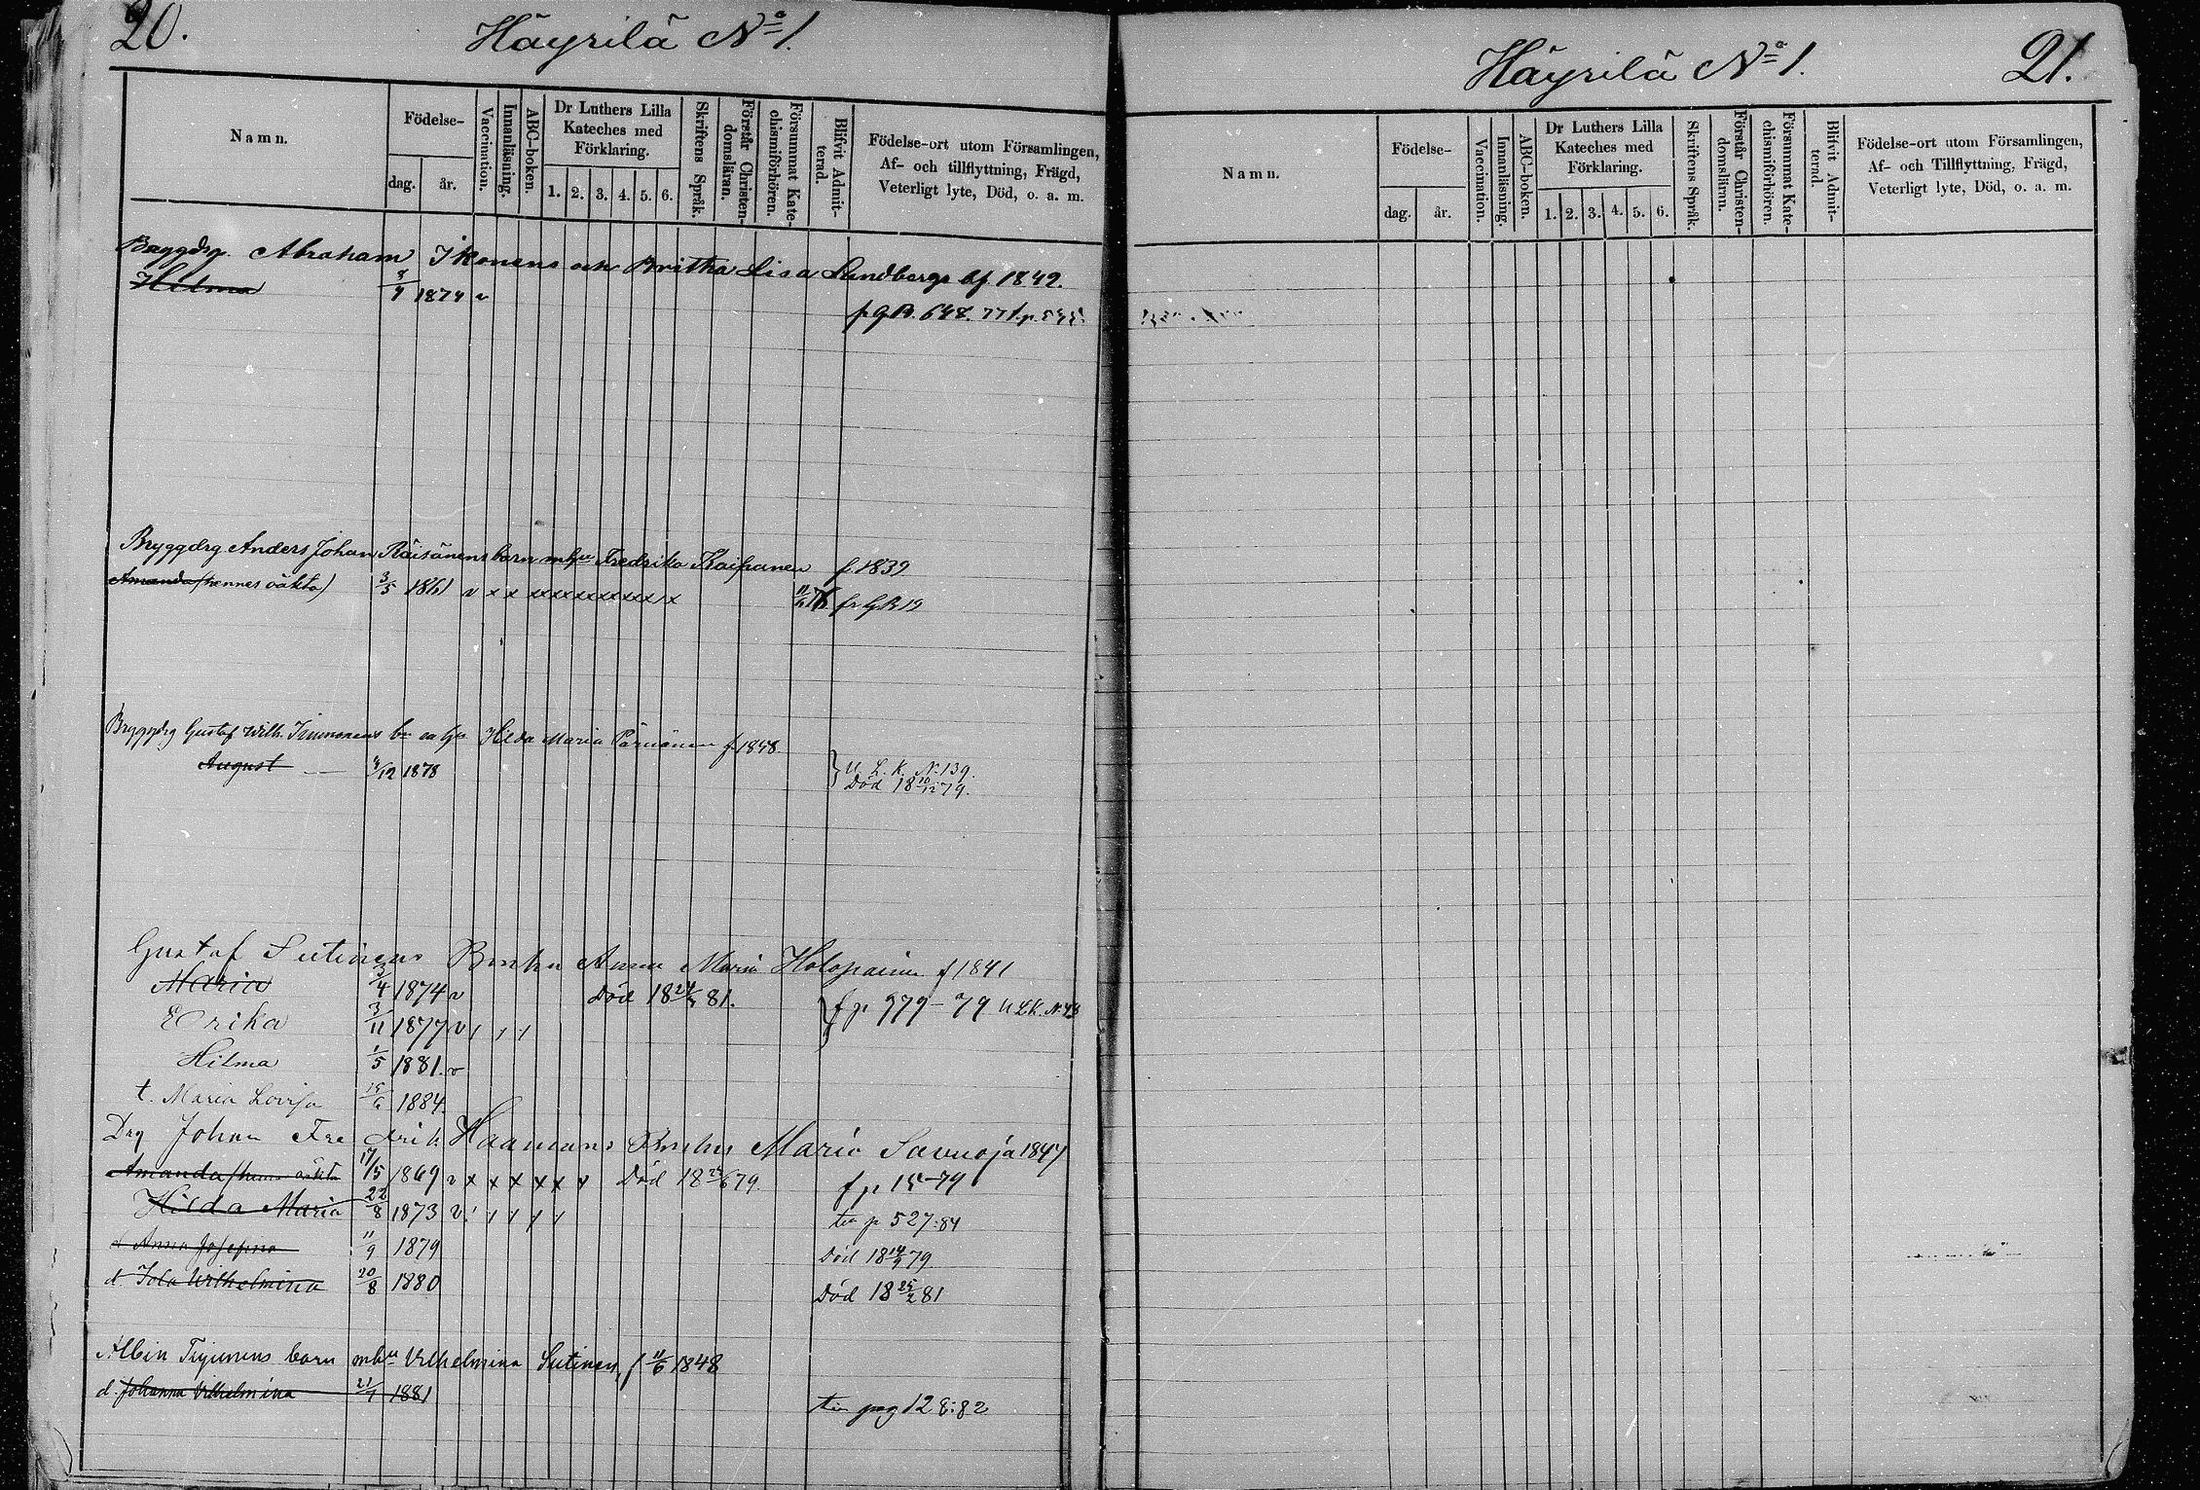 20.
Häyrilä No 1.
Namn.
Födelse-
dag.
år.
Vaccination.
Innanläsning.
ABC-boken.
Dr Luthers Lilla
Kateches med
Förklaring.
1. 2. 3. 4. 5. 6.
Skriftens Språk.
Förstår Christen-
domsläran.
Försummat Kate-
chismiförhören.
Blifvit Admit-
terad.
Födelse-ort utom Församlingen,
Af- och tillflyttning, Frägd,
Veterligt lyte, Död, o. a. m.
Bryggdrg. Abraham Ikonens och Britha Lisa Sandbergs 1842.
Hilma 1874 v
648. 771.
Bryggdrg Anders Johan Räisänens barn mhu Fredrika Kaipanen f. 1839
Amanda (hennes oäkta) 3/5 1861 v x x xxxxxxxxxx x 11/6 76 fr G.B 19
Bryggdrg Gustaf Wilh. Immonens Hilda Maria Pärnänen f. 1848.
August — 4/12 1878 U. L. K. N. 139.
Död 18 10/12 79.
Gustaf Sutinens Anna Maria Holopainen f 1841
Maria 3/4 1874 v Död 18 81. f p 979-79 U L.K. N. 48
Erika 3/11 1877 v
Hilma 1/5 1881. v
t. Maria Lovisa 15/6 1884.
Drg Johan Fredrik Haamans Maria Savuoja 1847
Amanda (hens oäkta 17/5 1869 v x x x x x x Död 18 79. f p 15-79
Hilda Maria 22/8 1873 v till p 527:84
d Anna Josefina 11/9 1879 Död 18 14/9 79
d Ida Wilhelmina 20/8 1880 Död 18 25/2 81
Albin Tiyinens barn mhu Vilhelmina Sutinen, f 11/6 1848
d. Johanna Vilhelmina 21/7 1881
till pag 128:82
Häyrilä No 1.
21.
Namn.
Födelse-
dag.
år.
Vaccination.
Innanläsning.
ABC-boken.
Dr Luthers Lilla
Kateches med
Förklaring.
1. 2. 3. 4. 5. 6.
Skriftens Språk.
Förstår Christen-
domsläran.
Försummat Kate-
chismiförhören.
Blifvit Admit-
terad.
Födelse-ort utom Församlingen,
Af- och Tillflyttning, Frägd,
Veterligt lyte, Död, o. a. m.